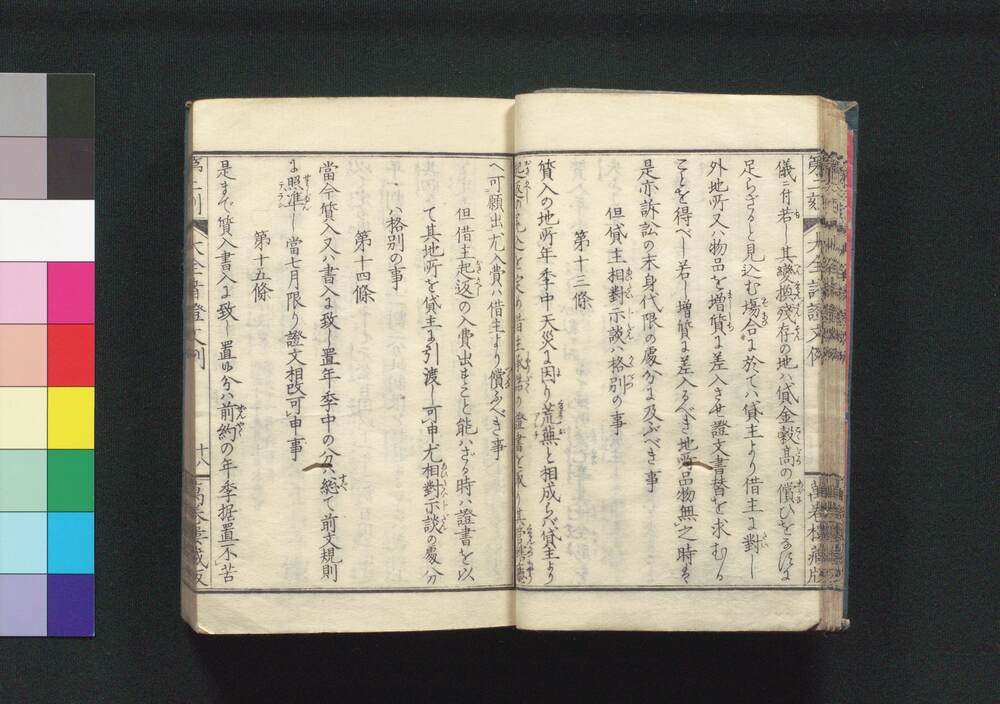 儀ニ付若し其變換殘存の地ハ貸金穀高の償ひをなすに
足らざると見込む場合に於てハ貸主より借主に對し
外地所又ハ物品を増質に差入させ證文書替を求むる
ことを得べし若し増質に差入るべき地所品物無之時は
是亦訴訟の末身代限の處分に及ぶべき事
但貸主相對示談ハ格別の事
第十三條
質入の地所年季中天災に因り荒蕪と相成らバ貸主より
へ可願出尤入費ハ借主より償ふべき事
但借主起返の入費出すこと能ハざる時ハ證書を以
て其地所を貸主に引渡し可申尤相對示談の處分
ハ格別の事
第十四條
當今質入又ハ書入に致し置年季中の分ハ總て前文規則
に照準し當七月限り證文相改可申事
第十五條
是まで質入書入に致し置候分ハ前約の年季据置不苦
十八